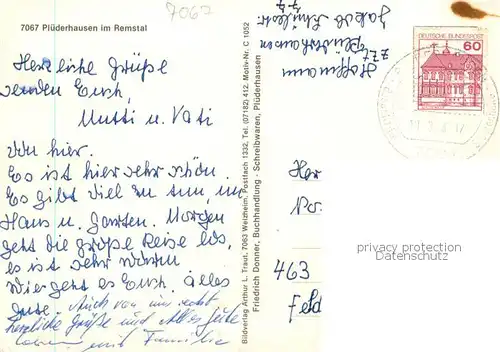 7067 Plüderhausen im Remstal
7067
Herzliche Grüße
senden Euch,
Mutti u. Vati
Von hier.
Es ist hier sehr schön.
Es gibt viel zu tun, im
Haus u. Garten. Morgen
geht die große Reise los,
es ist sehr warm
Wie geht es Euch. Alles
Gute.
Auch von uns recht
herzliche Grüße und Alles Gute
und Familie
Bildverlag Arthur L. Traut, 7063 Welzheim, Postfach 1332, Tel. (07182) 412. Motiv-Nr. C 1052
Friedrich Donner, Buchhandlung - Schreibwaren, Plüderhausen
Hoffmann
z.Zt. Plüderhausen
Jakob Schülestr.
DEUTSCHE BUNDESPOST
60
Her
463
privacy protection
Datenschutz